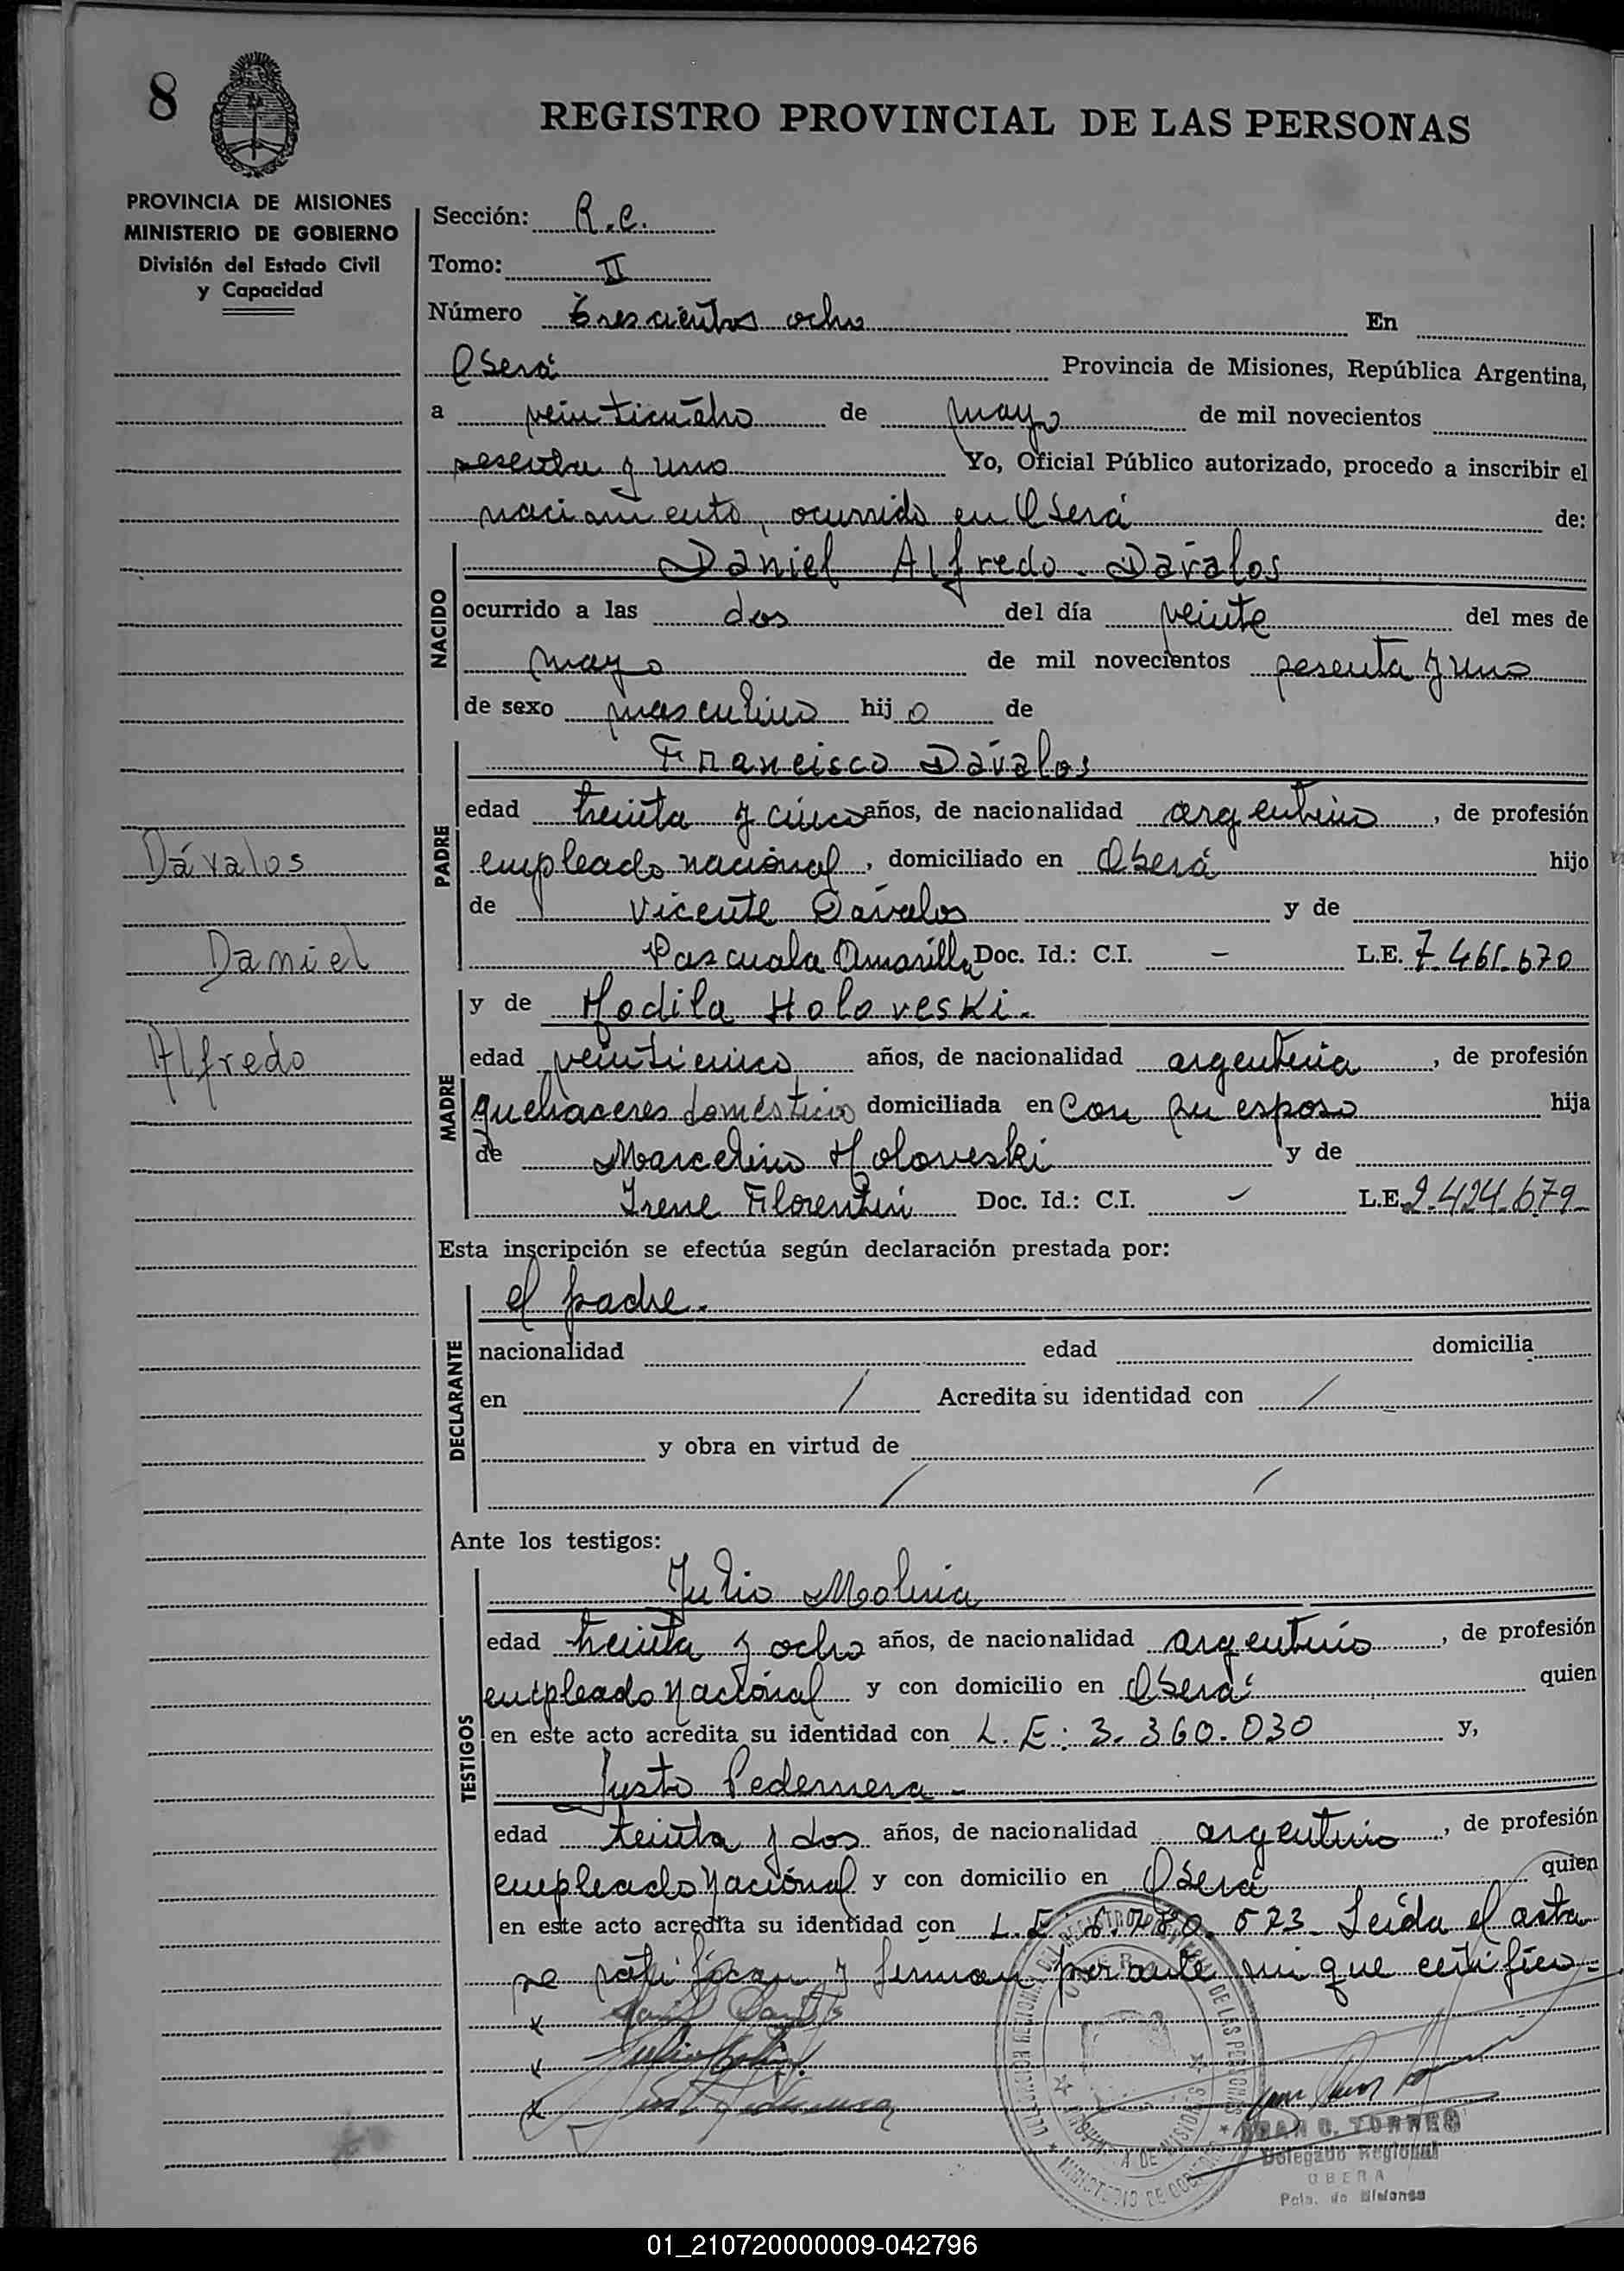 8
REGISTRO PROVINCIAL DE LAS PERSONAS
PROVINCIA DE MISIONES
MINISTERIO DE GOBIERNO
División del Estado Civil
y Capacidad
Sección: R.C.
Tomo: II
Número Trescientos ocho En
Oberá Provincia de Misiones, República Argentina,
a veinticuatro de mayo de mil novecientos
sesenta y uno Yo, Oficial Público autorizado, procedo a inscribir el
nacimiento, ocurrido en Oberá de:
NACIDO
Daniel Alfredo Dávalos
ocurrido a las dos del día veinte del mes de
mayo de mil novecientos sesenta y uno
de sexo masculino hijo de
PADRE
Francisco Dávalos
edad treinta y cinco años, de nacionalidad argentino, de profesión
empleado nacional, domiciliado en Oberá hijo
de Vicente Dávalos y de
Pascuala Amarilla Doc. Id.: C.I. — L.E. 7.461.670
Dávalos
Daniel
Alfredo
MADRE
y de Hodila Holoveski.
edad veinticinco años, de nacionalidad argentina, de profesión
quehaceres domésticos domiciliada en Con su esposo hija
de Marcelino Holoveski y de
Irene Florentin Doc. Id.: C.I. — L.E. 2.424.679
Esta inscripción se efectúa según declaración prestada por:
DECLARANTE
el padre.
nacionalidad edad domicilia
en / Acredita su identidad con /
y obra en virtud de
/ /
Ante los testigos:
TESTIGOS
Julio Molina
edad treinta y ocho años, de nacionalidad argentino, de profesión
empleado Nacional y con domicilio en Oberá quien
en este acto acredita su identidad con L.E: 3.360.030 y,
Justo Pedernera
edad treinta y dos años, de nacionalidad argentino, de profesión
empleado Nacional y con domicilio en Oberá quien
en este acto acredita su identidad con L.E. 6.780.573 Leída el acta
se ratifican y firman por ante mi que certifico
x
x
x
TORRES
Delegado Regional
OBERA
Pcia. de Misiones
01_210720000009-042796